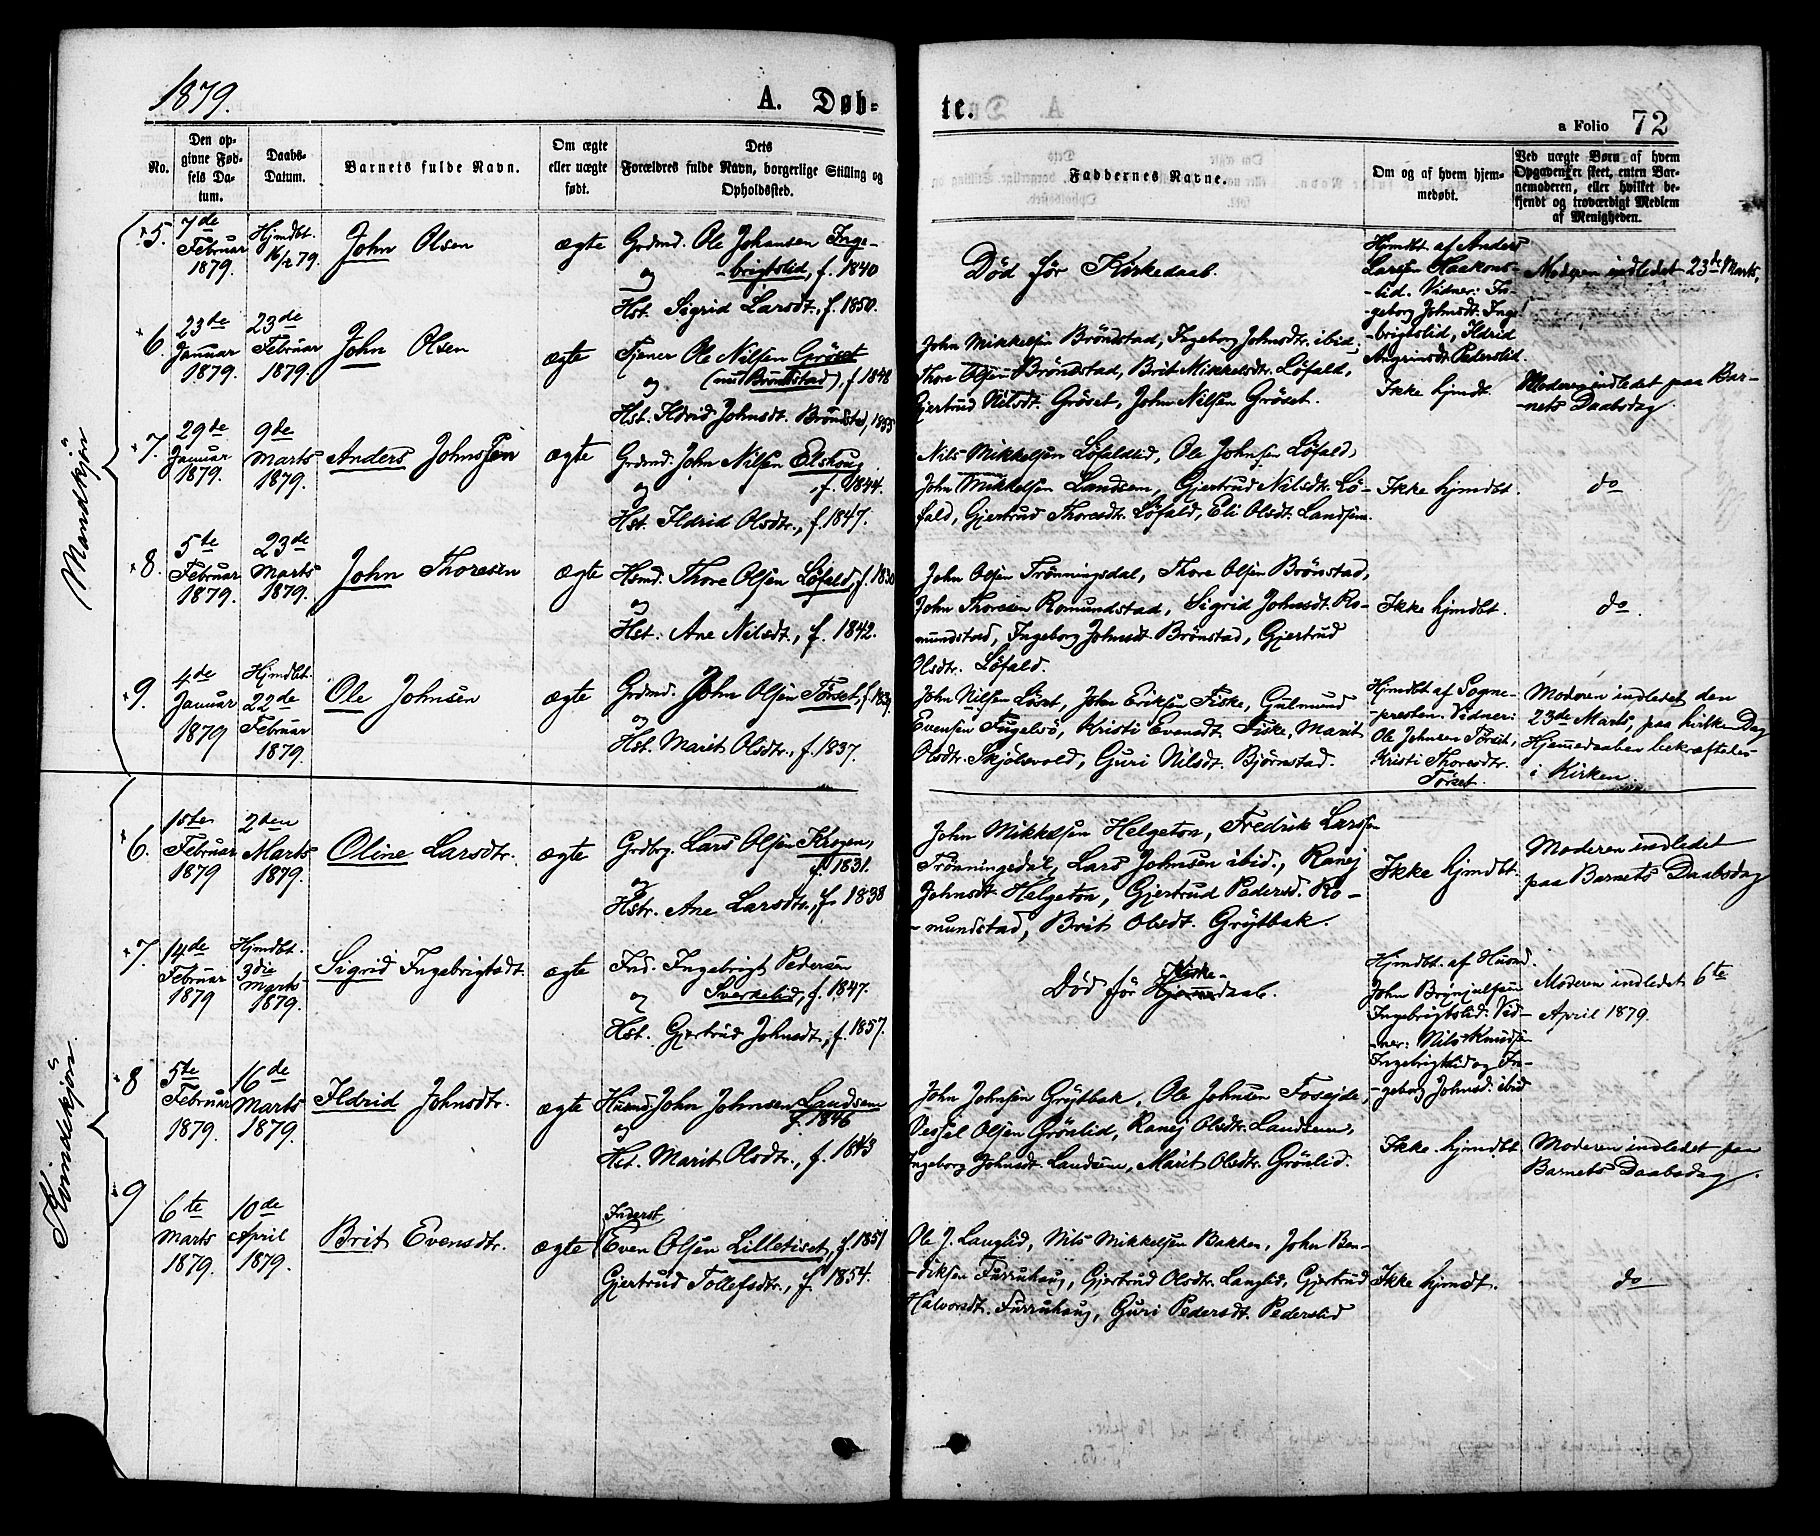 1879.
A. Døb-
te.
a Folio 72
No.
Den op-
givne Fød-
sels Da-
tum.
Daabs-
Datum.
Barnets fulde Navn.
Om ægte
eller uægte
født.
Dets
Forældres fulde Navn, borgerlige Stilling og
Opholdssted.
Faddernes Navne.
Om og af hvem hjem-
medøbt.
Ved uægte Børn af hvem
Opgaven er skeet, enten Bar-
nemoderen, eller hvilket be-
kjendt og troværdigt Medlem
af Menigheden.
Mandkjön
5.
7de
Februar
1879.
Hjmdbt.
16/2 79.
John Olsen
ægte
Grdmd. Ole Johansen Inge-
og -brigtslid, f. 1840
Hst. Sigrid Larsdt., f. 1850.
Död för Kirkedaab.
Hjmdbt. af Anders
Larsen Haakons-
-lid. Vidner: In-
-geborg Johnsdt. Inge-
-brigtslid, Ildrid
Angrimsdt. Pederslid.
Moderen indledet 23de Marts,
6.
23de
Januar
1879.
23de
Februar
1879.
John Olsen
ægte
Tjener Ole Nilsen Gröset
og (nu Bröndstad), f. 1848
Hst. Ildrid Johnsdt. Bröndstad, 1853
John Mikkelsen Bröndstad, Ingeborg Johnsdtr. ibid.,
Thore Olsen Bröndstad, Brit Mikkelsdtr. Löfald,
Gjertrud Nilsdt. Gröset, John Nilsen Gröset.
Ikke hjmdt.
Moderen indledet paa Bar-
-nets Daabsdag.
7.
29de
Januar
1879.
9de
Marts
1879.
Anders Johnssen
ægte
Grdmd. John Nilsen Elshoug
og , f. 1844.
Hst. Ildrid Olsdtr., f. 1847.
Nils Mikkelsen Löfaldlid, Ole Johnsen Löfald,
John Mikkelsen Landsem, Gjertrud Nilsdt. Lö-
fald, Gjertrud Thoresdt. Löfald, Eli Olsdt. Landsem.
Ikke hjmdbt.
do
8.
5te
Februar
1879.
23de
Marts
1879.
John Thoresen
ægte
Hsmd. Thore Olsen Löfald, f. 1830
og
Hst. Ane Nilsdt., f. 1842.
John Olsen Trönningsdal, Thore Olsen Brönstad,
John Thoresen Romundstad, Sigrid Johnsdt. Ro-
mundstad, Ingeborg Johnsdt. Brönstad, Gjertrud
Olsdtr. Löfald.
Ikke hjmdbt.
do
9.
4de
Januar
1879
Hjmdbt.
22de
Februar
1879.
Ole Johnsen
ægte
Grdmd. John Olsen Törset, f. 1839.
og
Hst. Marit Olsdt., f. 1837.
John Nilsen Löset, John Eriksen Fiske, Gulmund
Evensen Fugelsö, Kristi Evensdt. Fiske, Marit
Olsdtr. Skjölsvold, Guri Nilsdt. Björnstad.
Hjmdbt. af Sogne-
presten. Vidner:
Ole Johnsen Törset,
Kristi Thoresdtr.
Törset.
Moderen indledet den
23de Marts, paa hvilken Dag
Hjemmedaaben bekræftedes
i Kirken.
Kvindekjön.
6.
1ste
Februar
1879
2den
Marts
1879.
Oline Larsdtr.
ægte
Grdbrg. Lars Olsen Krogen,
f. 1831.
og
Hstr. Ane Larsdtr., f. 1838
John Mikkelsen Helgeton, Fredrik Larsen
Trönningsdal, Lars Johnsen ibid., Ranej
Johnsdt. Helgeton, Gjertrud Pedersd. Ro-
-mundstad, Brit Olsdt. Gröjtbak.
Ikke hjmdbt.
Moderen indledet
paa Barnets Daabsdag
7.
14de
Februar
1879
Hjmdbt.
3die
Marts
1879.
Sigrid Ingebrigtsdt.
ægte
Ind. Ingebrigt Pedersen
og Sverkelid, f. 1847.
Hst. Gjertrud Johnsdt., f. 1857.
Död för Kirke-
daab.
Hjmdbt. af Husmd.
John Brynjulfsen
Ingebrigtslid. Vid-
-ner: Nils Knudsen
Ingebrigtslid og In-
-geborg Johnsd. ibid
Moderen indledet 6te
April 1879.
8
5te
Februar
1879.
16de
Marts
1879.
Ildrid Johnsdtr.
ægte
Husmd. John Johnsen Landsem
og f. 1846
Hst. Marit Olsdtr., f. 1843
John Johnsen Gröjtbak, Ole Johnsen Fosejde,
Vessel Olsen Grönlid, Ranej Olsdtr. Landsem,
Ingeborg Johnsdt. Landsem, Marit Olsdtr. Grönlid.
Ikke hjmdbt.
Moderen indledet paa
Barnets Daabsdag.
9
6te
Marts
1879.
10de
April
1879.
Brit Evensdtr.
ægte
Inderst
Even Olsen Lilletiset, f. 1851
Gjertrud Tollefsdtr., f. 1854.
Ole J. Langlid, Nils Mikkelsen Bakken, John Ben-
-diksen Furruhaug, Gjertrud Olsdtr. Langlid, Gjertrud
Halvorsdt. Furruhaug, Guri Pedersdt. Pederslid
Ikke hjmdt.
do